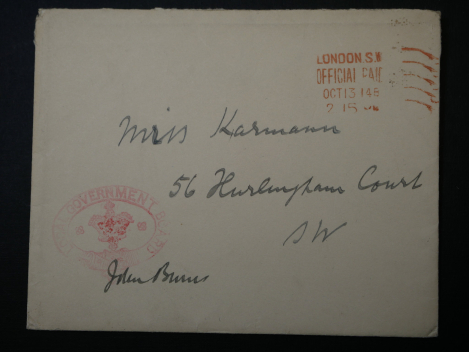 LONDON.S.W
OFFICIAL PAID
OCT 13 14
2 15
Miss Karmann
56 Hurlingham Court
SW
GOVERNMENT
John Burns